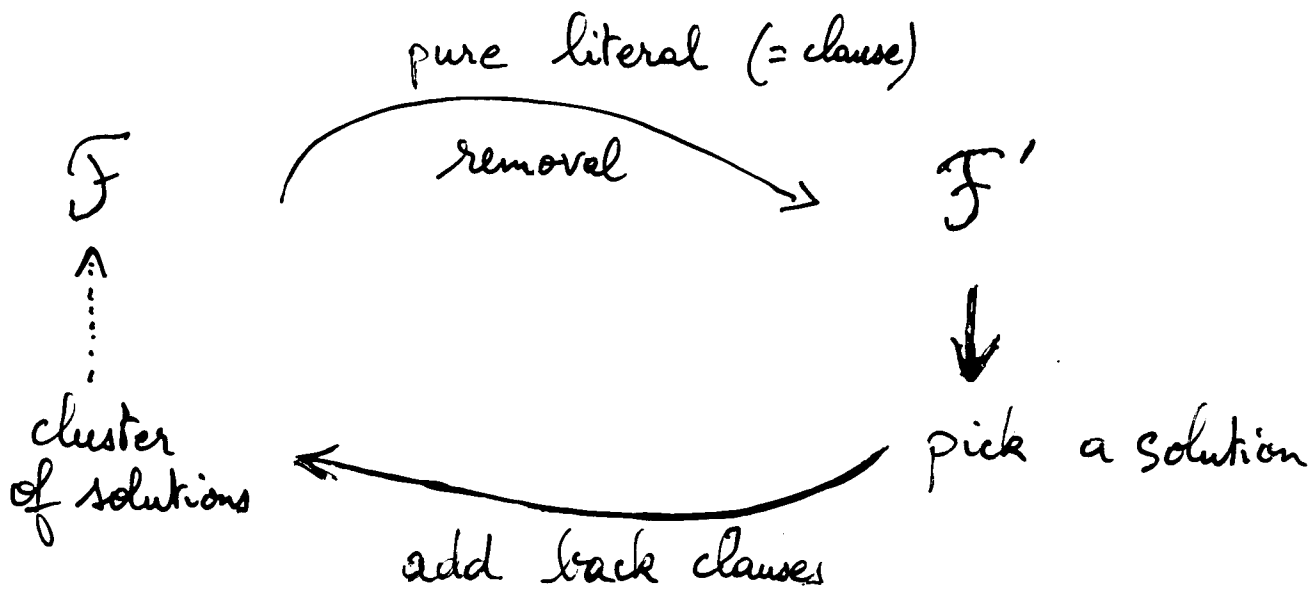 pure literal (= clause)
removal
F
F'
cluster
of solutions
pick a solution
add back clauses